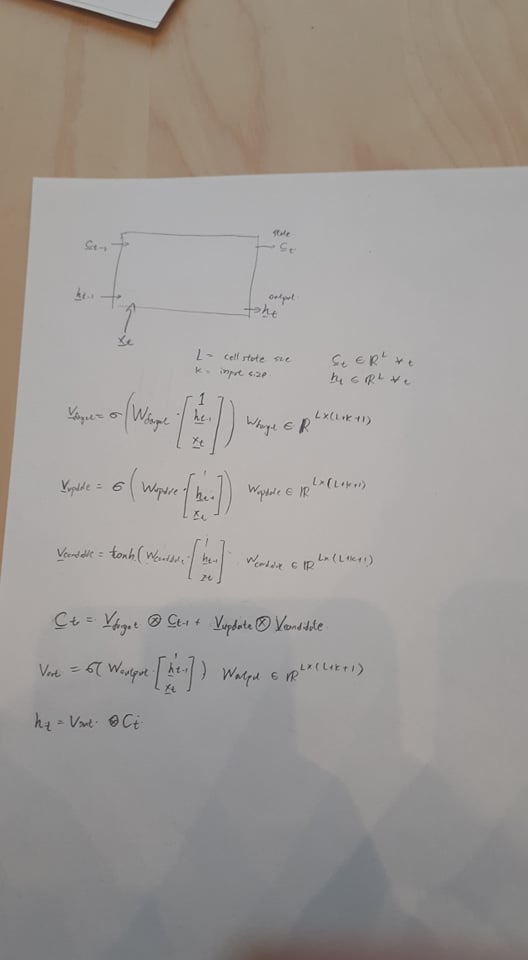 state
c_t-1 → → c_t
output
h_t-1 → → h_t
x_t
L = cell state size c_t ∈ ℝ^L ∀ t
K = input size h_t ∈ ℝ^L ∀ t
V_forget = σ ( W_forget · [ 1 h_t-1 x_t ] ) W_forget ∈ ℝ^L×(L+K+1)
V_update = σ ( W_update · [ 1 h_t-1 x_t ] ) W_update ∈ ℝ^L×(L+K+1)
V_candidate = tanh ( W_candidate · [ 1 h_t-1 x_t ] W_candidate ∈ ℝ^L×(L+K+1)
C_t = V_forget ⊗ C_t-1 + V_update ⊗ V_candidate
V_out = σ ( W_output · [ 1 h_t-1 x_t ] ) W_output ∈ ℝ^L×(L+K+1)
h_t = V_out ⊗ C_t